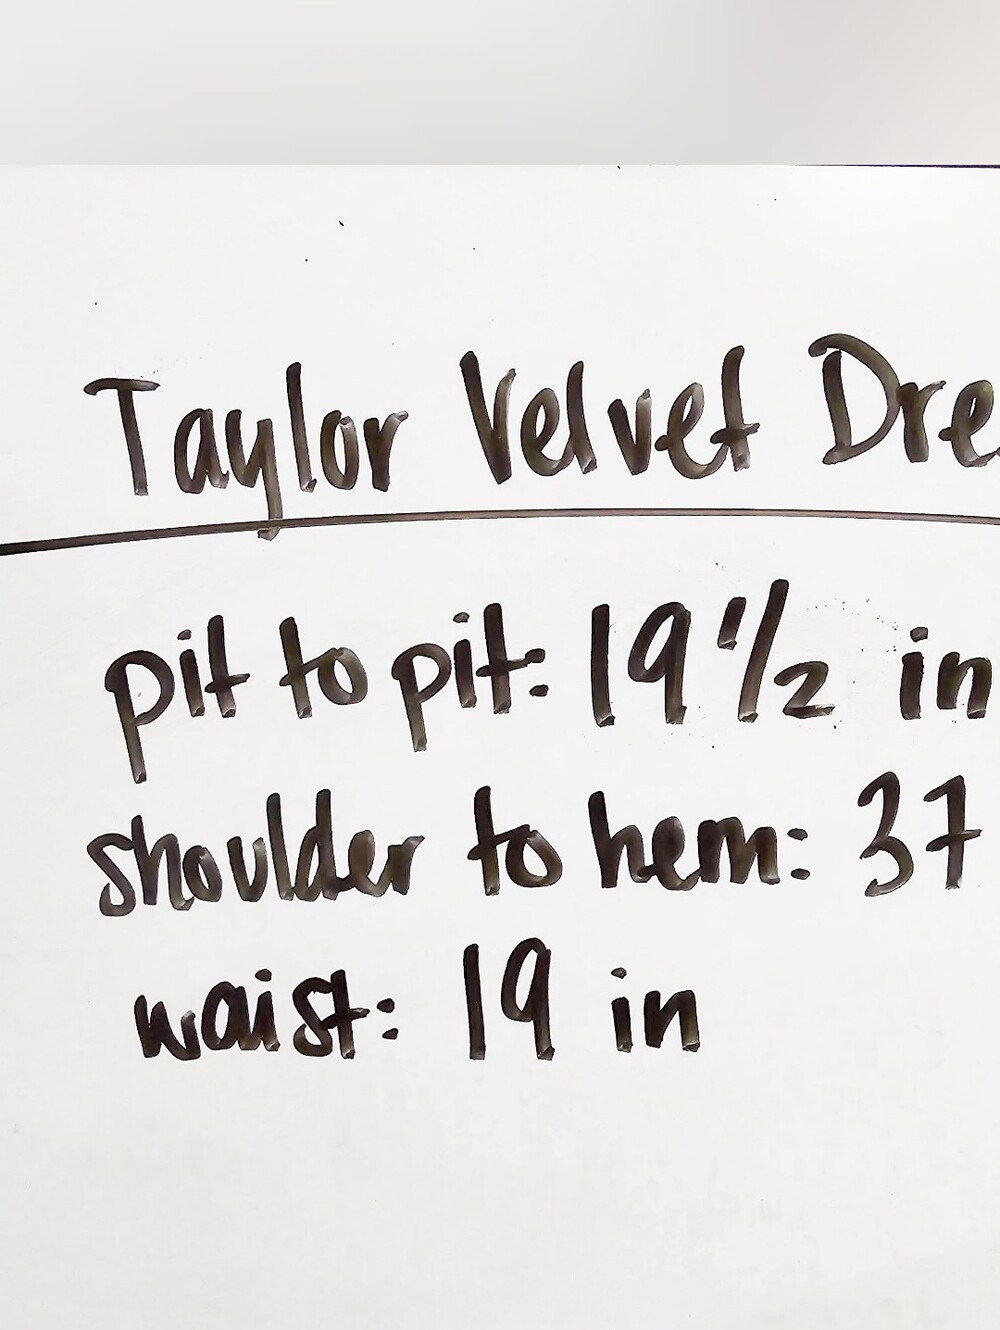 Taylor Velvet Dre
pit to pit: 19 1/2 in
shoulder to hem: 37
waist: 19 in